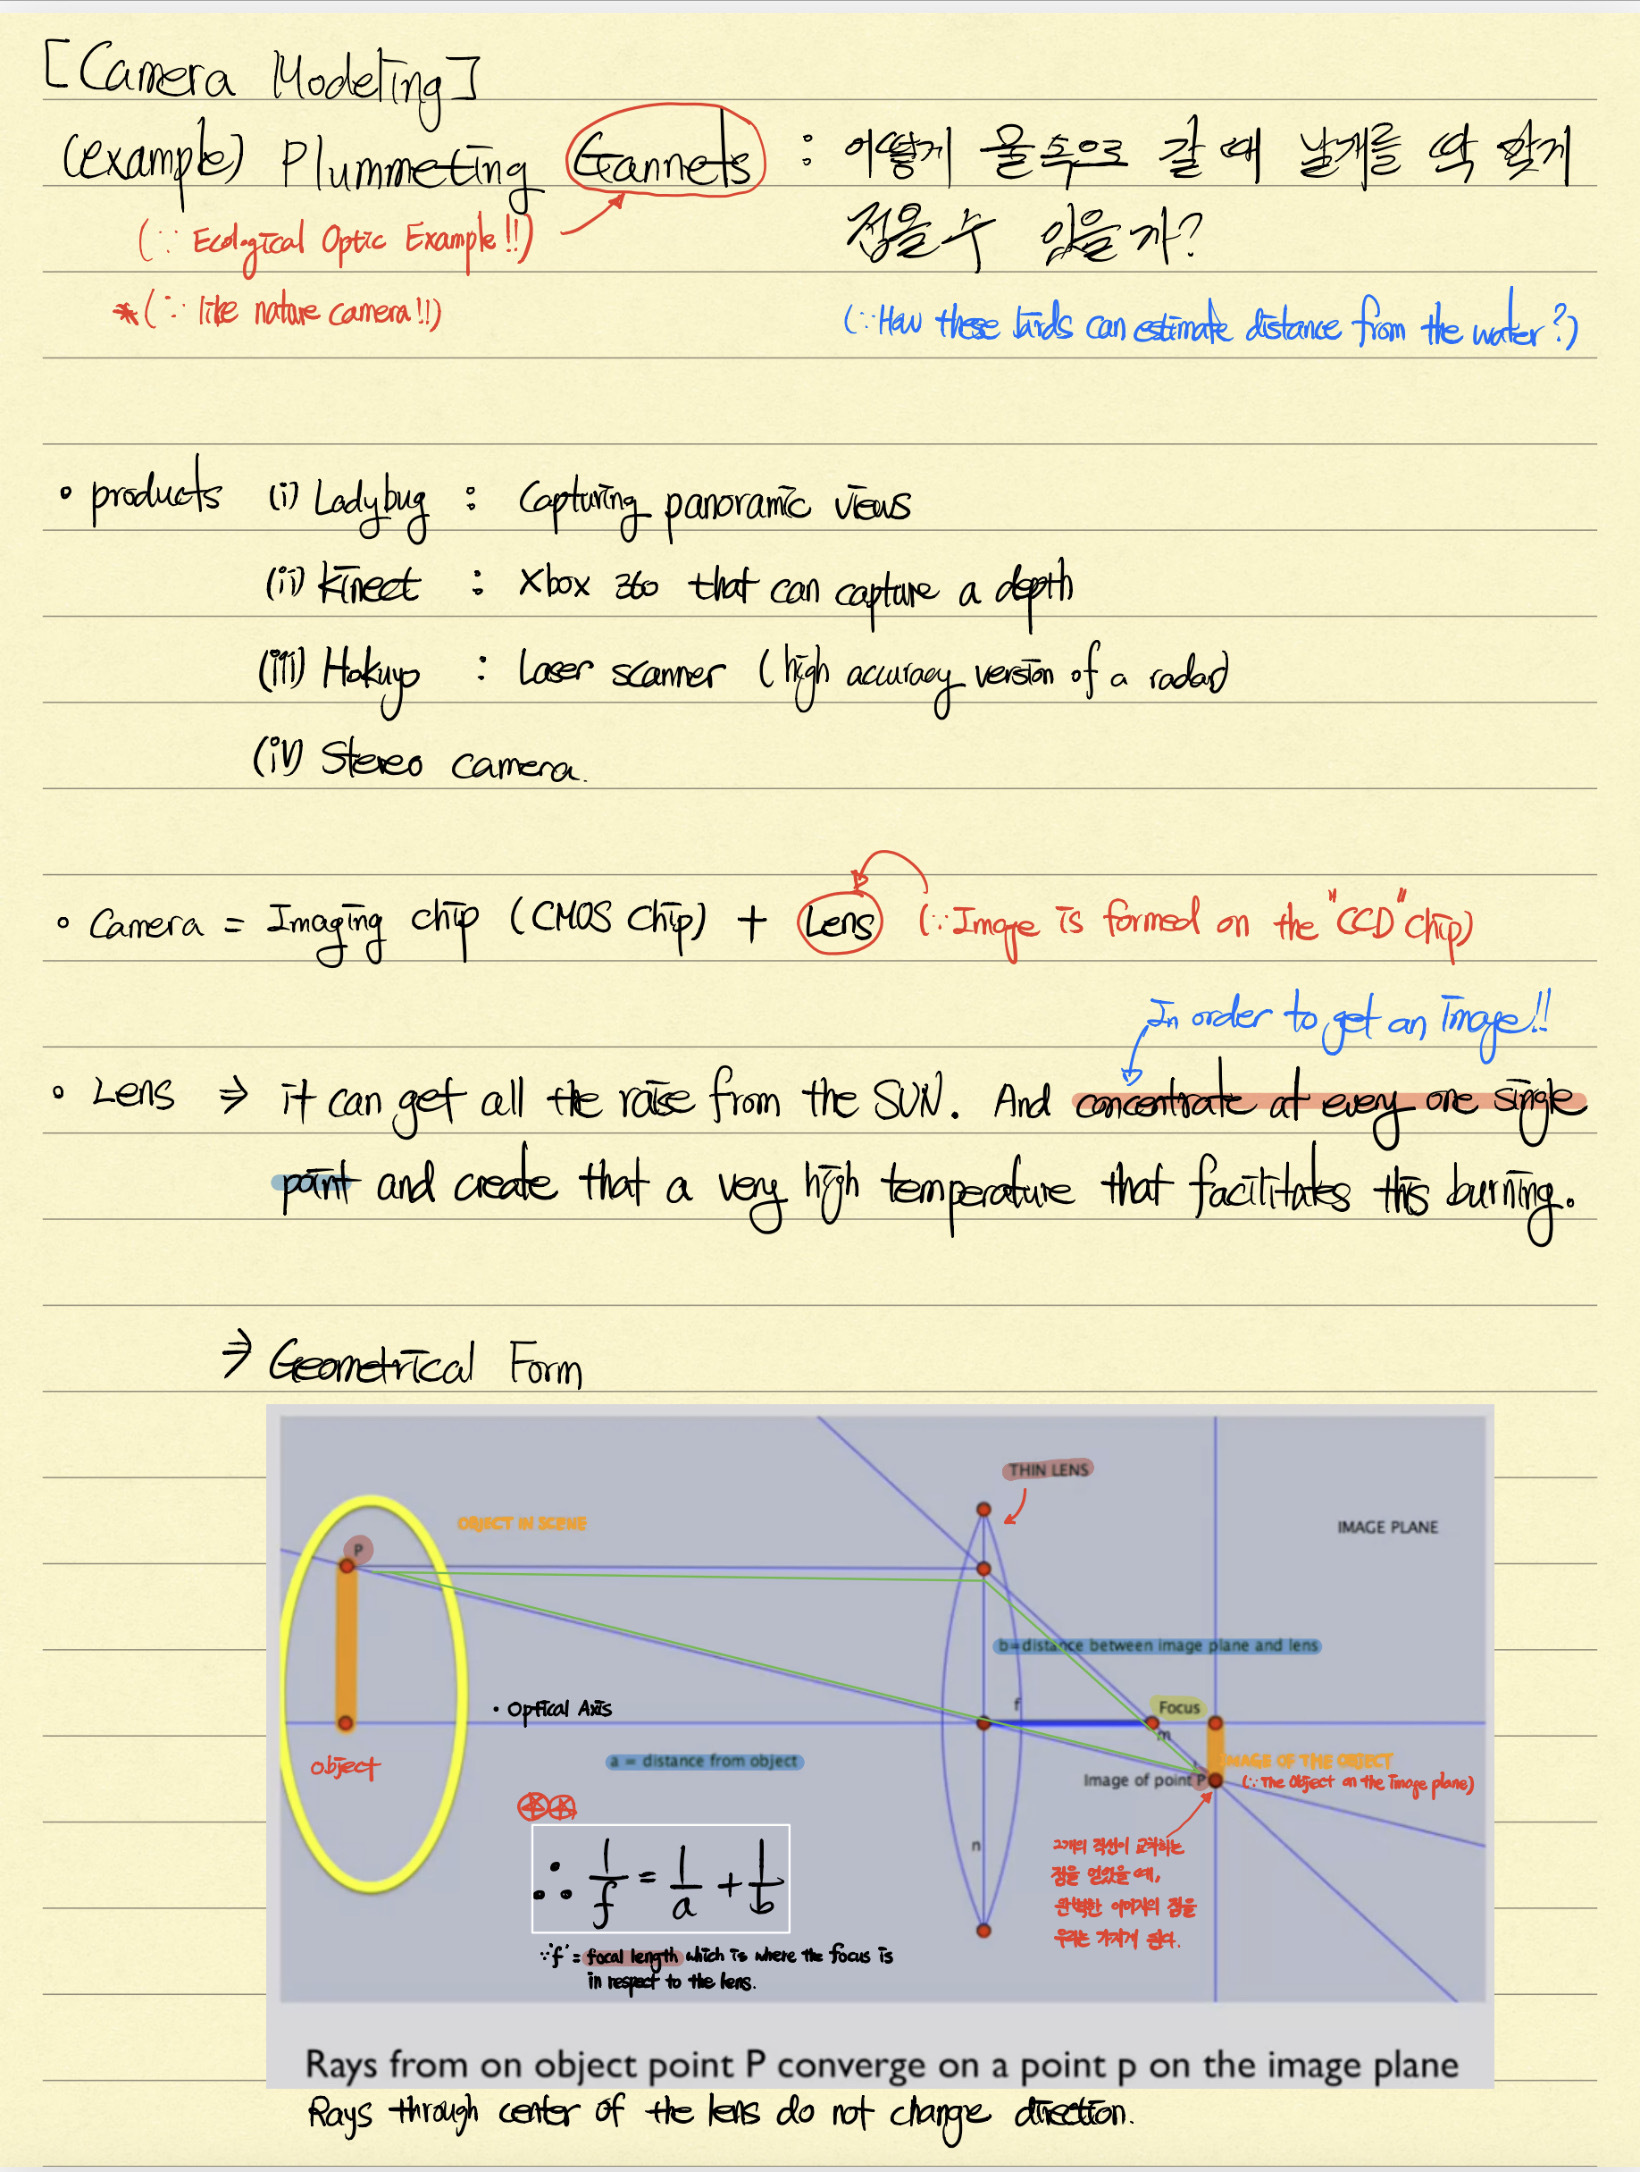 [Camera Modeling]
(example) Plummeting Gannets : 어떻게 물 속으로 갈 때 날개를 딱 맞게
접을 수 있을까?
(∵ Ecological Optic Example!!)
*(∵ like nature camera!!)
(∵How these birds can estimate distance from the water?)
• products (i) Ladybug : Capturing panoramic views
(ii) Kinect : Xbox 360 that can capture a depth
(iii) Hokuyo : Laser scanner (high accuracy version of a radar)
(iv) Stereo camera.
• Camera = Imaging chip (CMOS chip) + Lens (∵Image is formed on the "CCD" chip)
In order to get an image!!
• Lens ⇒ it can get all the raise from the SUN. And concentrate at every one single
point and create that a very high temperature that facilitates this burning.
⇒ Geometrical Form
THIN LENS
OBJECT IN SCENE
IMAGE PLANE
P
b=distance between image plane and lens
f
Focus
• Optical Axis
m
object
a = distance from object
IMAGE OF THE OBJECT
Image of point P
(∵The object on the image plane)
∴ 1/f = 1/a + 1/b
n
2개의 직선이 교차하는
점을 얻었을 때,
완벽한 이미지의 점을
우리는 가지게 된다.
∵'f' = focal length which is where the focus is
in respect to the lens.
Rays from on object point P converge on a point p on the image plane
Rays through center of the lens do not change direction.